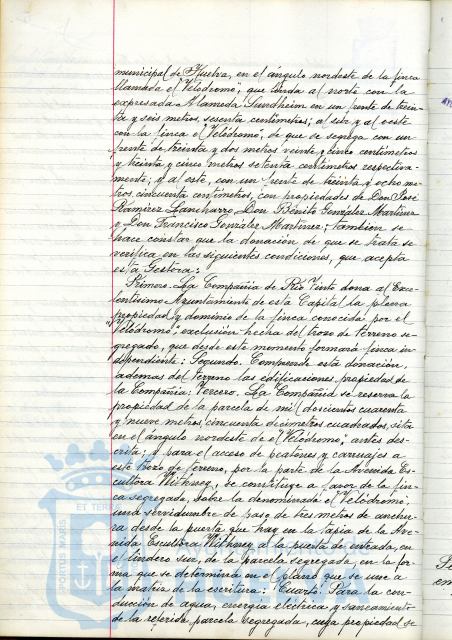 municipal de Huelva, en el ángulo nordeste de la finca
llamada el "Velódromo", que linda al norte con la
expresada Alameda Sundheim en un frente de trein-
ta y seis metros, sesenta centímetros; al sur y al oeste
con la finca el "Velódromo", de que se segrega con un
frente de treinta y dos metros veinte y cinco centímetros
y treinta y cinco metros setenta centímetros respectiva-
mente; y al este, con un frente de treinta y ocho me-
tros, cincuenta centímetros, con propiedades de Don José
Ramírez Lancharro, Don Benito González Martínez
y Don Francisco González Martínez; También se
hace constar que la donación de que se trata se
verifica en las siguientes condiciones, que acepta
esta Gestora:
Primero. La Compañía de Río Tinto dona al Exce-
lentísimo Ayuntamiento de esta Capital la plena
propiedad y dominio de la finca conocida por el
"Velódromo", exclusión hecha del trozo de terreno se-
gregado, que desde este momento formará finca in-
dependiente: Segundo. Comprende esta donación,
además del terreno las edificaciones, propiedad de
la Compañía; Tercero. La Compañía se reserva la
propiedad de la parcela de mil doscientos cuarenta
y nueve metros, cincuenta decímetros cuadrados, sita
en el ángulo nordeste de el "Velódromo", antes des-
crita; y para el acceso de peatones y carruajes a
este trozo de terreno, por la parte de la Avenida Es-
cultora Withney, se constituye a favor de la fin-
ca segregada, sobre la denominada el "Velódromo",
una servidumbre de paso de tres metros de anchu-
ra desde la puerta que hay en la tapia de la Ave-
nida Escultora Withney a la puerta de entrada, en
el lindero sur, de la parcela segregada, en la for-
ma que se determina en el plano que se une a
la matriz de la escritura: Cuarto. Para la con-
ducción de agua, energía eléctrica y saneamiento
de la referida parcela segregada, cuya propiedad se
ET TERR
PORTUS MARIS